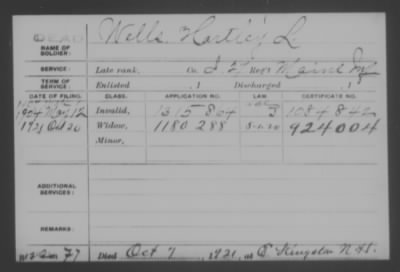 DEAD
NAME OF SOLDIER: Wells Hartley L
SERVICE: Late rank, Co. Reg't Maine Inf
TERM OF SERVICE: Enlisted , 1 Discharged , 1
DATE OF FILING. CLASS. APPLICATION NO. LAW. CERTIFICATE NO.
1904 May 12 Invalid, 1315804 1084842
1921 Oct 20 Widow, 1180288 924004
Minor,
ADDITIONAL SERVICES:
REMARKS:
Died Oct 7, 1921, at Kingston N.H.